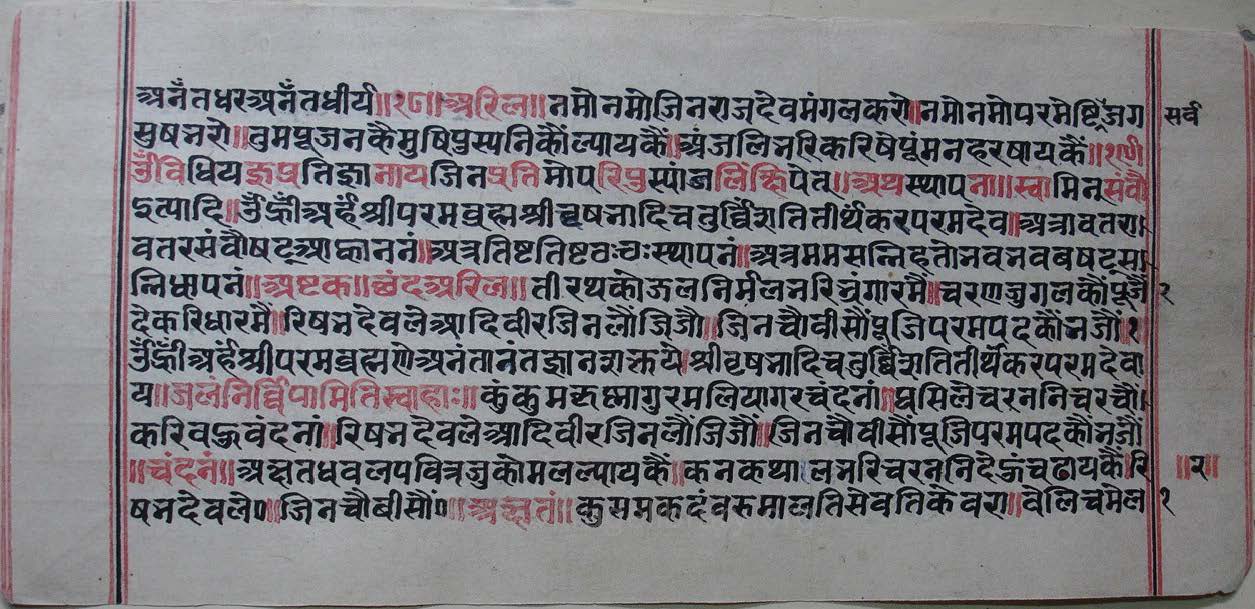 अनँतधरअनँतधीर्य॥१८॥अरिल॥नमोनमोजिनराजदेवमंगलकरो॥नमोनमोपरमेष्ट्रिजग सर्व
सुषभरो॥तुमपूजनकैमुषिपुस्पनिकौंल्पायकैं॥अंजलिभरिकरिषेपूंमनहरषायकैं॥१९॥
उँविधियज्ञप्रतिज्ञानायजिनप्रतिमोपरिपुस्पांजलिंक्षिपेत॥अथस्थापना॥स्वामिनूसंवौ
इत्यादि॥उँह्रीँअर्हँश्रीपरमव्रह्मश्रीवृषभादिचतुर्विंशतितीर्थंकरपरमदेव॥अत्रावतरा
वतरसंवौषट्आह्वाननं॥अत्रतिष्टतिष्टवःवःस्थापनं॥अत्रममसन्निहतोभवभवबषट्स
न्निधापनं॥अष्टक॥छंदअरिल॥तीरथकोजलनिर्मलभरिभृंगारमैं॥चरणजुगलकौंपूजैं २
देकरिधारमैं॥रिषभदेवलेआदिवीरजिनलौंजिजौं॥जिनचौवीसौंपूजिपरमपदकौंभजौं॥१
उँह्रीँअर्हँश्रीपरमव्रह्मणेअनंतानंतज्ञानशक्तये॥श्रीवृषभादिचतुर्विंशतितीर्थंकरपरमदेवा
य॥जलंनिर्विपामितिस्वाहाः॥कुंकुमकृष्मागुरमलियागरचंदनां॥घसिलैचरननिचरचौं
करिवहुवंदनां॥रिषभदेवलेआदिवीरजिनलौंजिजौं॥जिनचौवीसौंपूजिपरमपदकौंभजौं
॥चंदनं॥अक्षतधवलपवित्रजुकोमलल्पायकैं॥कनकथालभरिचरननिदेहुंचढायकैं॥रि ॥२॥
षभदेवले०॥जिनचौबीसौं०॥अक्षतं॥कुसमकदंवरुमालतिसेवतिकेवरा॥वेलिचमेल १